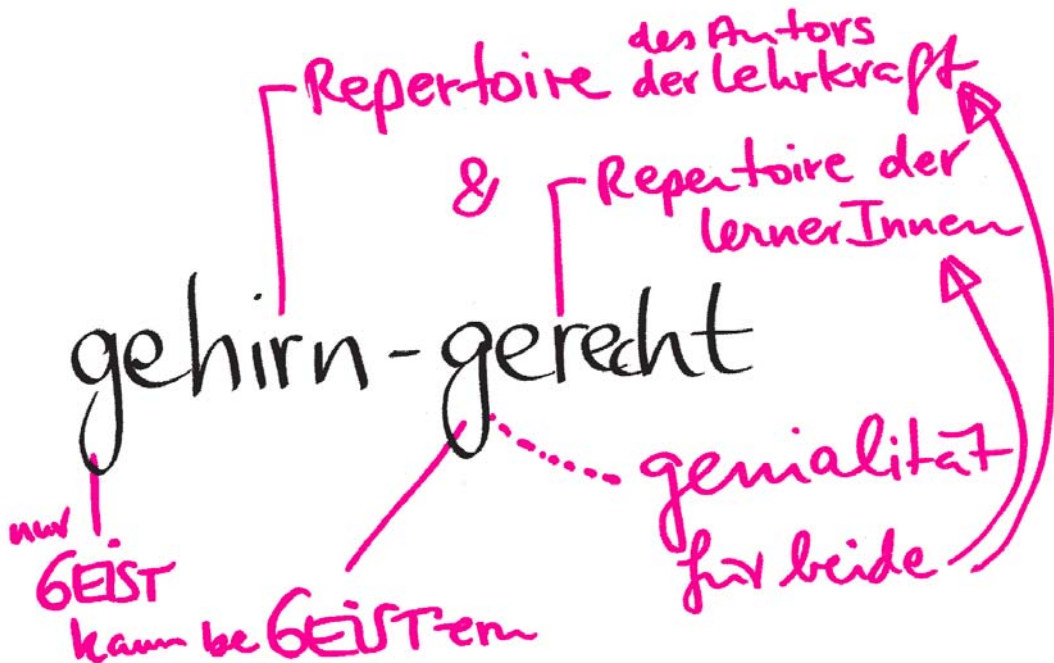 des Autors
Repertoire der Lehrkraft
& Repertoire der
lernerInnen
gehirn-gerecht
genialität
für beide
nur
GEIST
kann beGEISTern